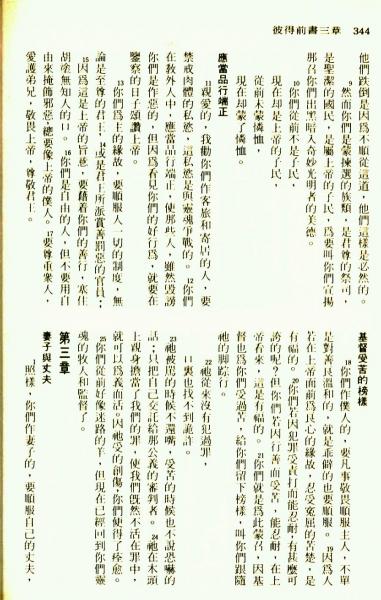 彼得前書三章 344
他們跌倒是因爲不順從這道,他們這樣是必然的。
9然而你們是蒙揀選的族類,是君尊的祭司,
是聖潔的國民,是屬上帝的子民,爲要叫你們宣揚
那召你們出黑暗入奇妙光明者的美德。
10你們從前不是子民,
現在却是上帝的子民,
從前未蒙憐恤,
現在却蒙了憐恤。
應當品行端正
11親愛的,我勸你們作客旅和寄居的人,要
禁戒肉體的私慾,這私慾是與靈魂爭戰的。12你們
在教外人中,應當品行端正,使那些人,雖然毀謗
你們是作惡的,但因爲看見你們的好行爲,就要在
鑒察的日子頌讚上帝。
13你們爲主的緣故,要順服人一切的制度,無
論是至尊的君王,14或是君王所派賞善罰惡的官員;
15因爲這是上帝的旨意,要藉着你們的善行,塞住
胡塗無知人的口。16你們是自由的人,但不要用自
由來掩飾邪惡,總要像上帝的僕人。17要尊重衆人,
愛護弟兄,敬畏上帝,尊敬君王。
基督受苦的榜樣
18你們作僕人的,要凡事敬畏順服主人,不單
是對善良溫和的,就是乖僻的也要順服。19因爲人
若在上帝面前爲良心的緣故,忍受冤屈的苦楚,是
有福的。20你們若因犯罪受責打而能忍耐,有甚麼可
誇的呢?但你們若因行善而受苦,能忍耐,在上
帝看來,這是有福的。21你們就是爲此蒙召,因基
督也爲你們受過苦,給你們留下榜樣,叫你們跟隨
祂的脚踪行。
22祂從來沒有犯過罪,
口裏也找不到詭詐。
23祂被駡的時候不還嘴,受苦的時候也不說恐嚇的
話;只把自己交託給那公義的審判者。24祂在木頭
上親身擔當了我們的罪,使我們既然不活在罪中,
就可以爲義而活。因祂受的創傷,你們便得了痊愈。
25你們從前好像迷路的羊,但現在已經回到你們靈
魂的牧人和監督了。
第三章
妻子與丈夫
1照樣,你們作妻子的,要順服自己的丈夫,